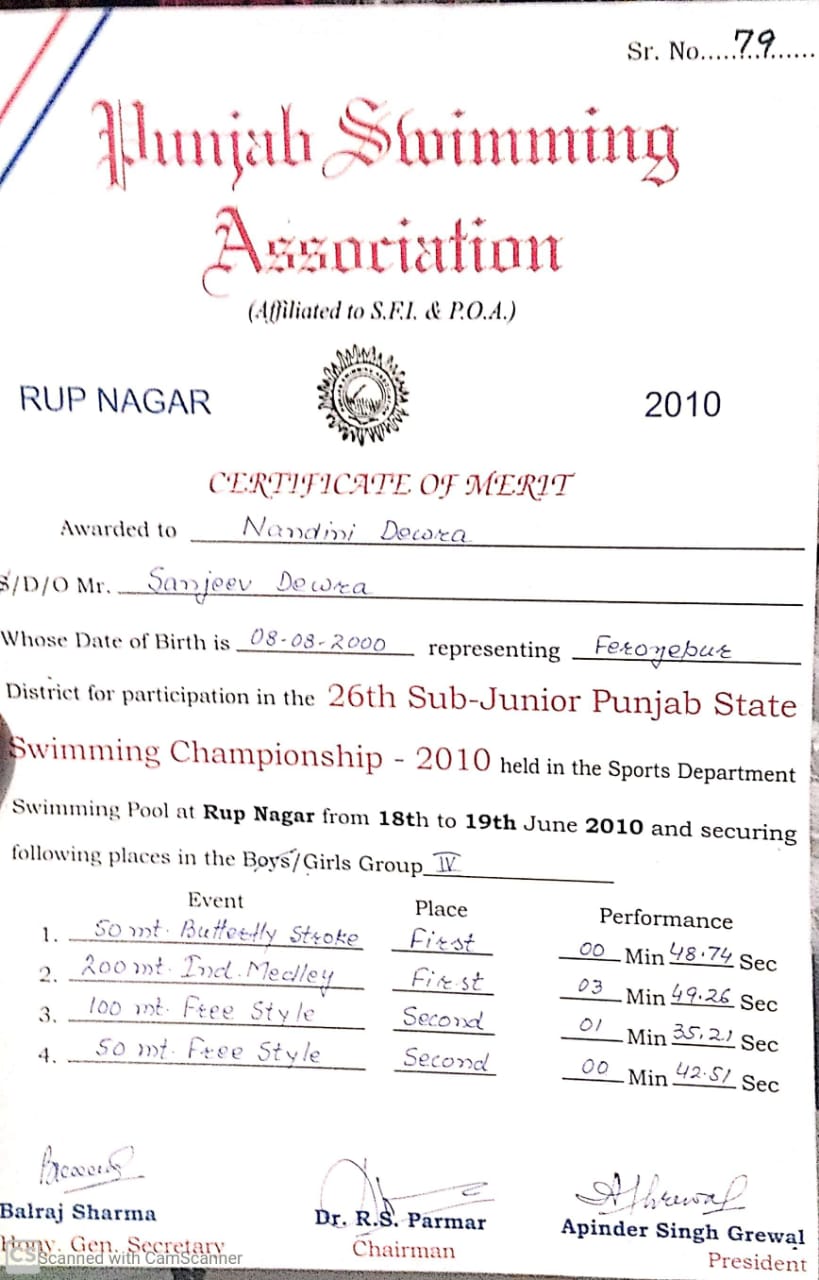 Sr. No.....79......
Punjab Swimming
Association
(Affiliated to S.F.I. & P.O.A.)
RUP NAGAR 2010
CERTIFICATE OF MERIT
Awarded to Nandini Dewra
S/D/O Mr. Sanjeev Dewra
Whose Date of Birth is 08-08-2000 representing Ferozepur
District for participation in the 26th Sub-Junior Punjab State
Swimming Championship - 2010 held in the Sports Department
Swimming Pool at Rup Nagar from 18th to 19th June 2010 and securing
following places in the Boys/Girls Group IV
Event Place Performance
1. 50 mt. Butterfly Stroke First 00 Min 48.74 Sec
2. 200 mt. Ind. Medley First 03 Min 49.26 Sec
3. 100 mt. Free Style Second 01 Min 35.21 Sec
4. 50 mt. Free Style Second 00 Min 42.51 Sec
Balraj Sharma Dr. R.S. Parmar Apinder Singh Grewal
Hony. Gen. Secretary Chairman President
CS Scanned with CamScanner